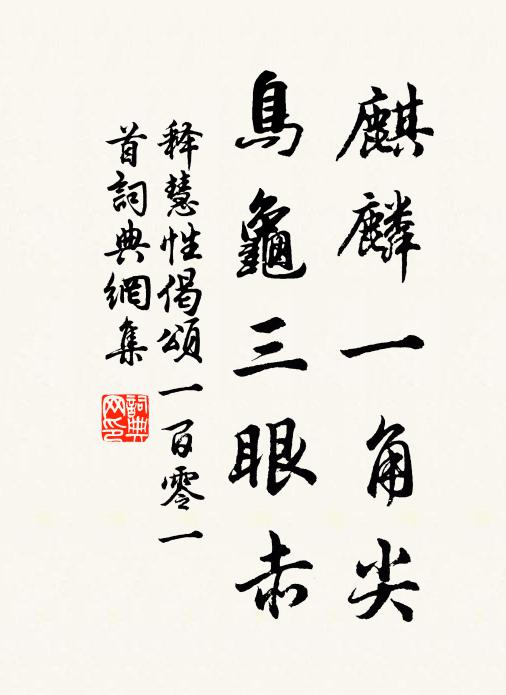 麒麟一角尖
烏龜三眼赤
释慧性偈頌一百零一
首詞典網集
詞典
网印